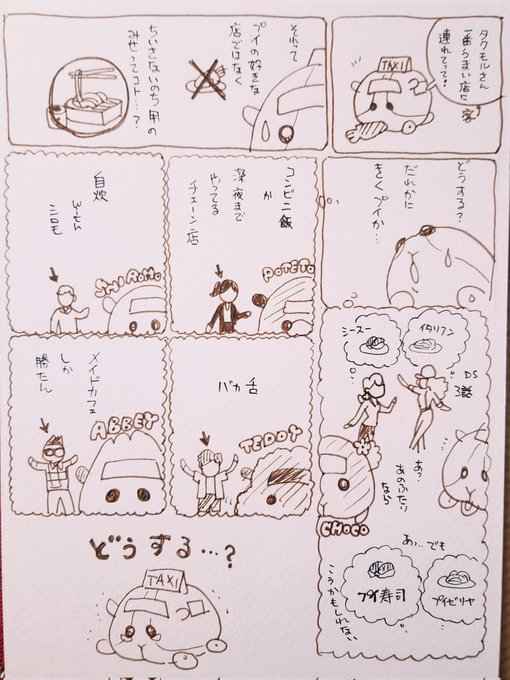 タクモルさん
一番うまい店に
連れてって!
TAXI
それって
プイの好きな
店ではなく
ちいさないのち用の
みせってコト…?
どうする?
だれかに
きくプイか…
コンビニ飯
か
深夜まで
やってる
チェーン店
POTETO
自炊
シロモ
SHIROMO
DS
3話
イタリアン
シースー
あ?
あのふたり
なら
CHOCO
あ…でも
プイゼリヤ
プイ寿司
こうかもしれない
バカ舌
TEDDY
メイドカフェ
しか
勝たん
ABBEY
どうする…?
TAXI